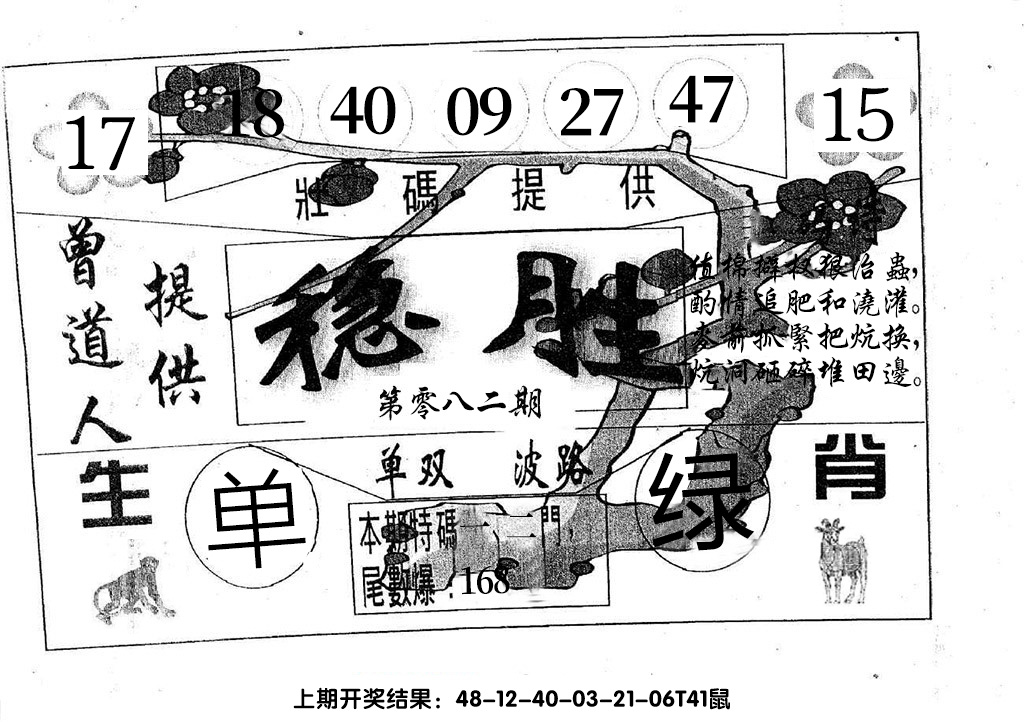 17 18 40 09 27 47 15
壯碼提供
曾道人
提供
稳胜
第零八二期
值棉擀杈狠治蟲，
酌情追肥和澆灌。
麥前抓緊把炕换，
炕洞砸碎堆田邊。
单双 波路
生 单 绿 肖
本期特碼一、二門，
尾數爆：168
上期开奖结果：48-12-40-03-21-06T41鼠